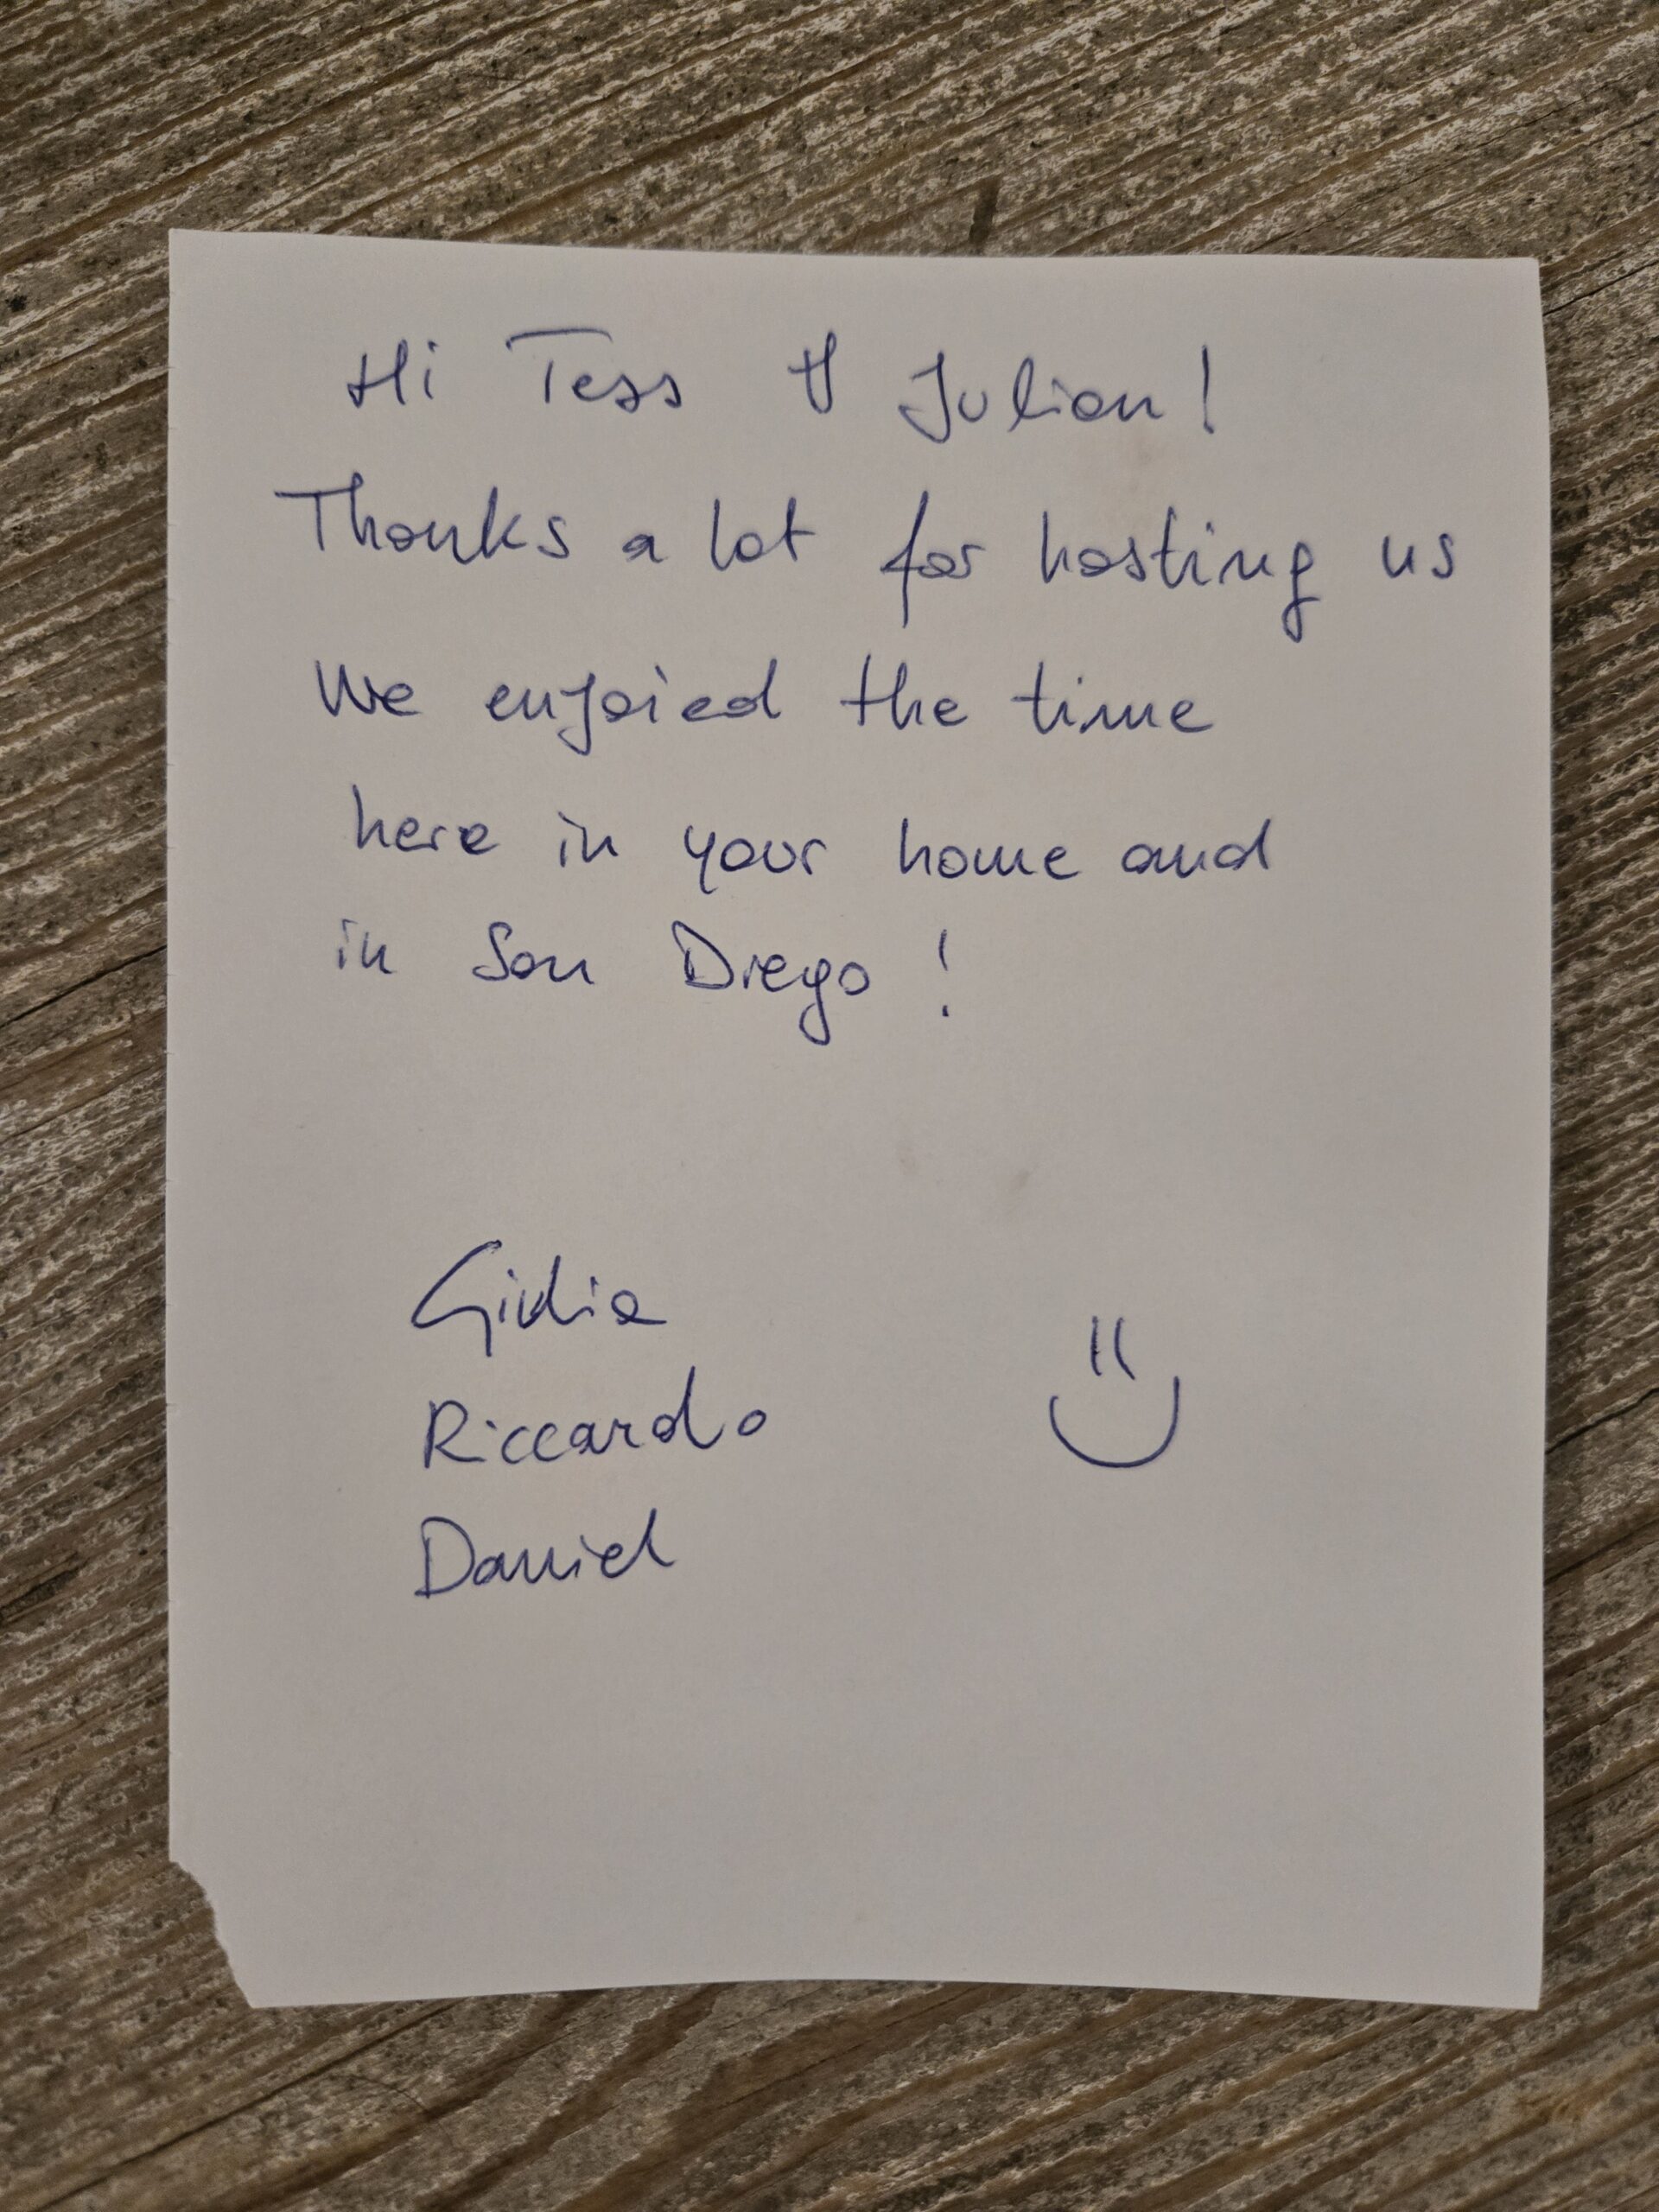 Hi Tess & Julian!
Thanks a lot for hosting us
We enjoied the time
here in your home and
in San Diego!
Giulia
Riccardo
Daniel